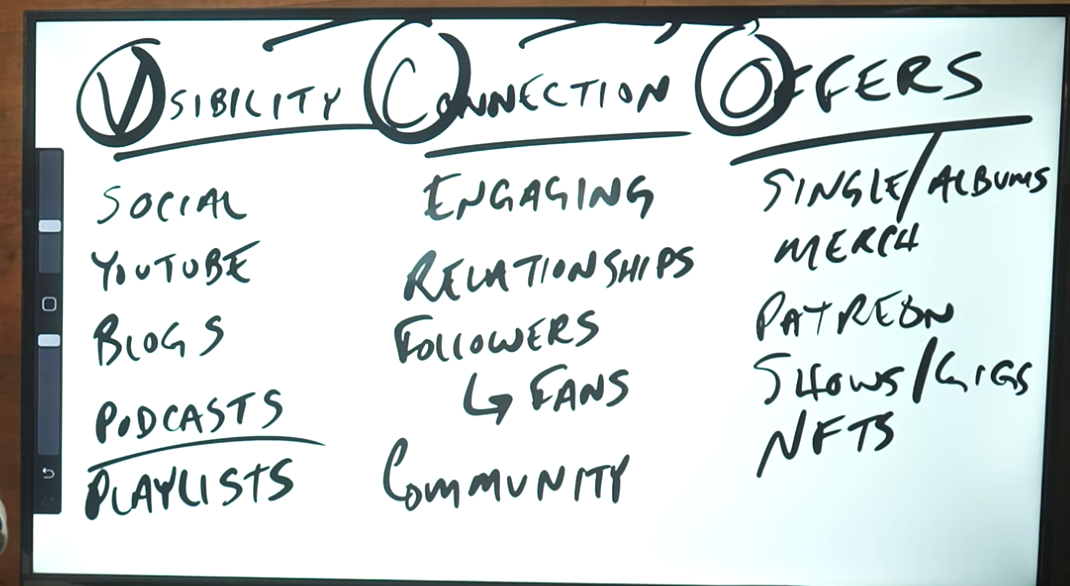 VISIBILITY
SOCIAL
YOUTUBE
BLOGS
PODCASTS
PLAYLISTS
CONNECTION
ENGAGING
RELATIONSHIPS
FOLLOWERS
↳ FANS
COMMUNITY
OFFERS
SINGLE/ALBUMS
MERCH
PATREON
SHOWS/GIGS
NFTS